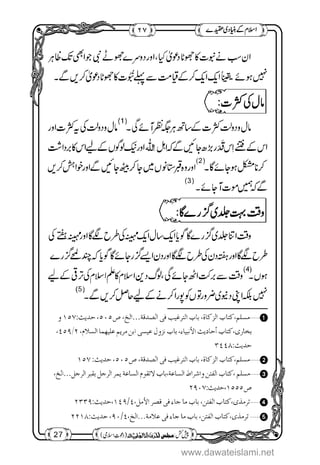 اسلام کے بنیادی عقیدے ۲۷
ان سب نے نبوت کا جھوٹا دعویٰ کیا، اور دوسرے جھوٹے نبی جو ابھی تک ظاہر
نہیں ہوئے یقیناً ایک ایک کرکے قیامت سے پہلے نبوّت کا جھوٹا دعویٰ کریں گے۔
مال کی کثرت:
مال و دولت کثرت کے ساتھ ہر جگہ نظر آئے گی۔(1) مال و دولت کی یہ کثرت اور
اس کے فتنے اِس قدر بڑھ جائیں گے کہ اہل اللہ اور نیک لوگوں کے لیے اس کا برداشت
کرنا مشکل ہوجائے گا۔(2) وہ قبرستانوں میں جاکر بیٹھ جائیں گے اور خواہش کریں
گے کہ ہمیں موت آجائے۔(3)
وقت بہت جلدی گزرے گا:
وقت اتنا جلدی گزرے گا گویا کہ ایک سال ایک مہینہ کی طرح لگے گا اور مہینہ ہفتے کی
طرح لگے گا اور ہفتہ دن کی طرح لگے گا اور دن ایسے گزر جائے گا گویا کہ چند لمحے گزرے
ہوں۔(4) وقت سے برکت اٹھ جائے گی، لوگ دین اسلام کا علم اسلام کی ترقی کے لیے
نہیں بلکہ اپنی دینوی ضرورتوں کو پورا کرنے کے لیے حاصل کریں گے۔(5)
1 مسلم، کتاب الزکاة، باب الترغیب فی الصدقة...الخ، ص۵۰۵، حدیث:۱۵۷ و
بخاری، کتاب أحادیث الأنبیاء، باب نزول عیسی ابن مریم علیهما السلام، ۲/۴۵۹،
حدیث:۳۴۴۸
2 مسلم، کتاب الزکاة، باب الترغیب فی الصدقة، ص۵۰۵، حدیث:۱۵۷
3 مسلم، کتاب الفتن واشراط الساعة، باب لاتقوم الساعة حتی یمر الرجل بقبر الرجل...الخ،
ص۱۵۵۵، حدیث:۲۹۰۷
4 ترمذی، کتاب الفتن، باب ما جاء فی قصر الأمل، ۴/۱۴۹، حدیث:۲۳۳۹
5 ترمذی، کتاب الفتن، باب ما جاء فی علامة...الخ، ۴/۹۰، حدیث:۲۲۱۸
27 پیش کش: مجلس (دعوتِ اسلامی)
www.dawateislami.net